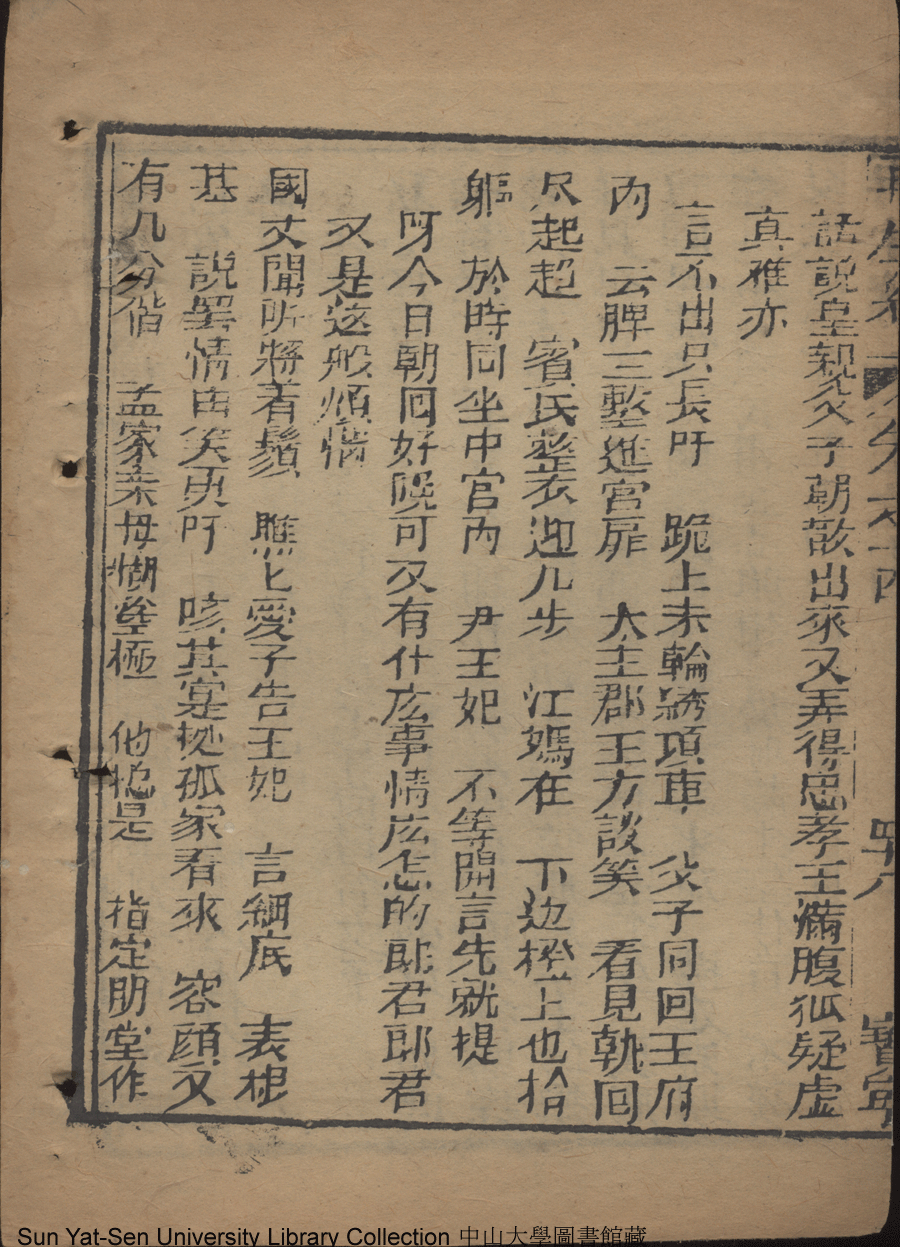 再生緣
四八
話說皇親父子朝散出來又弄得忠孝王滿腹狐疑虛
真难亦
言不出只長吁　跪上未輪綉項車　父子同回王府
内　云脾三整進宮扉　太主郡王方談笑　看見執回
尽起超　賓氏整衣迎几步　江媽在　下边橙上也抬
躯　於時同坐中官内　尹王妃　不等開言先就提
呀今日朝囘好晚可又有什庅事情庅怎的郎君郎君
又是这般煩惱
國丈聞听將着鬚　瞧匕愛子告王妃　言細底　表根
基　說罢情由笑更吁　咳其寔拠孤家看來　容顔又
有几分偕　孟家亲母糊塗極　他
是　指定明堂作
Sun Yat-Sen University Library Collection 中山大學圖書館藏